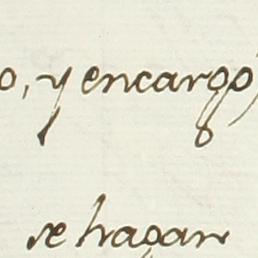 o, y encargo
se hagan